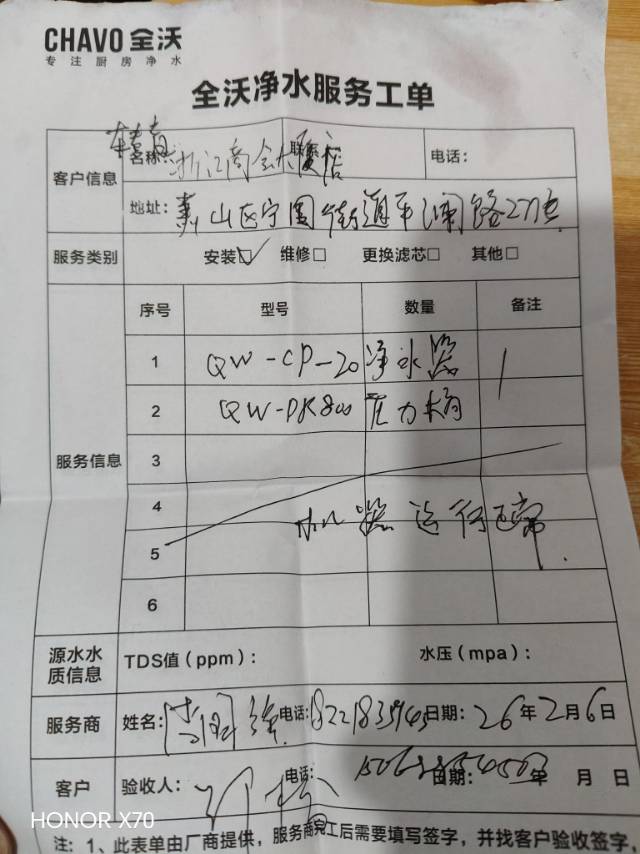 CHAVO 全沃
专注厨房净水
全沃净水服务工单
客户信息 名称: 浙江商会大厦店 联系 电话:
地址: 萧山区宁围街道平澜路277号
服务类别 安装☑ 维修□ 更换滤芯□ 其他□
服务信息 序号 型号 数量 备注
1 QW-CP-20 净水器
2 QW-PK800 压力桶
3
4
机器运行正常
5
6
源水水质信息 TDS值(ppm): 水压(mpa):
服务商 姓名: 电话: 日期: 26年2月6日
客户 验收人: 电话: 日期: 年 月 日
注: 1、此表单由厂商提供,服务商完工后需要填写签字,并找客户验收签字,
HONOR X70